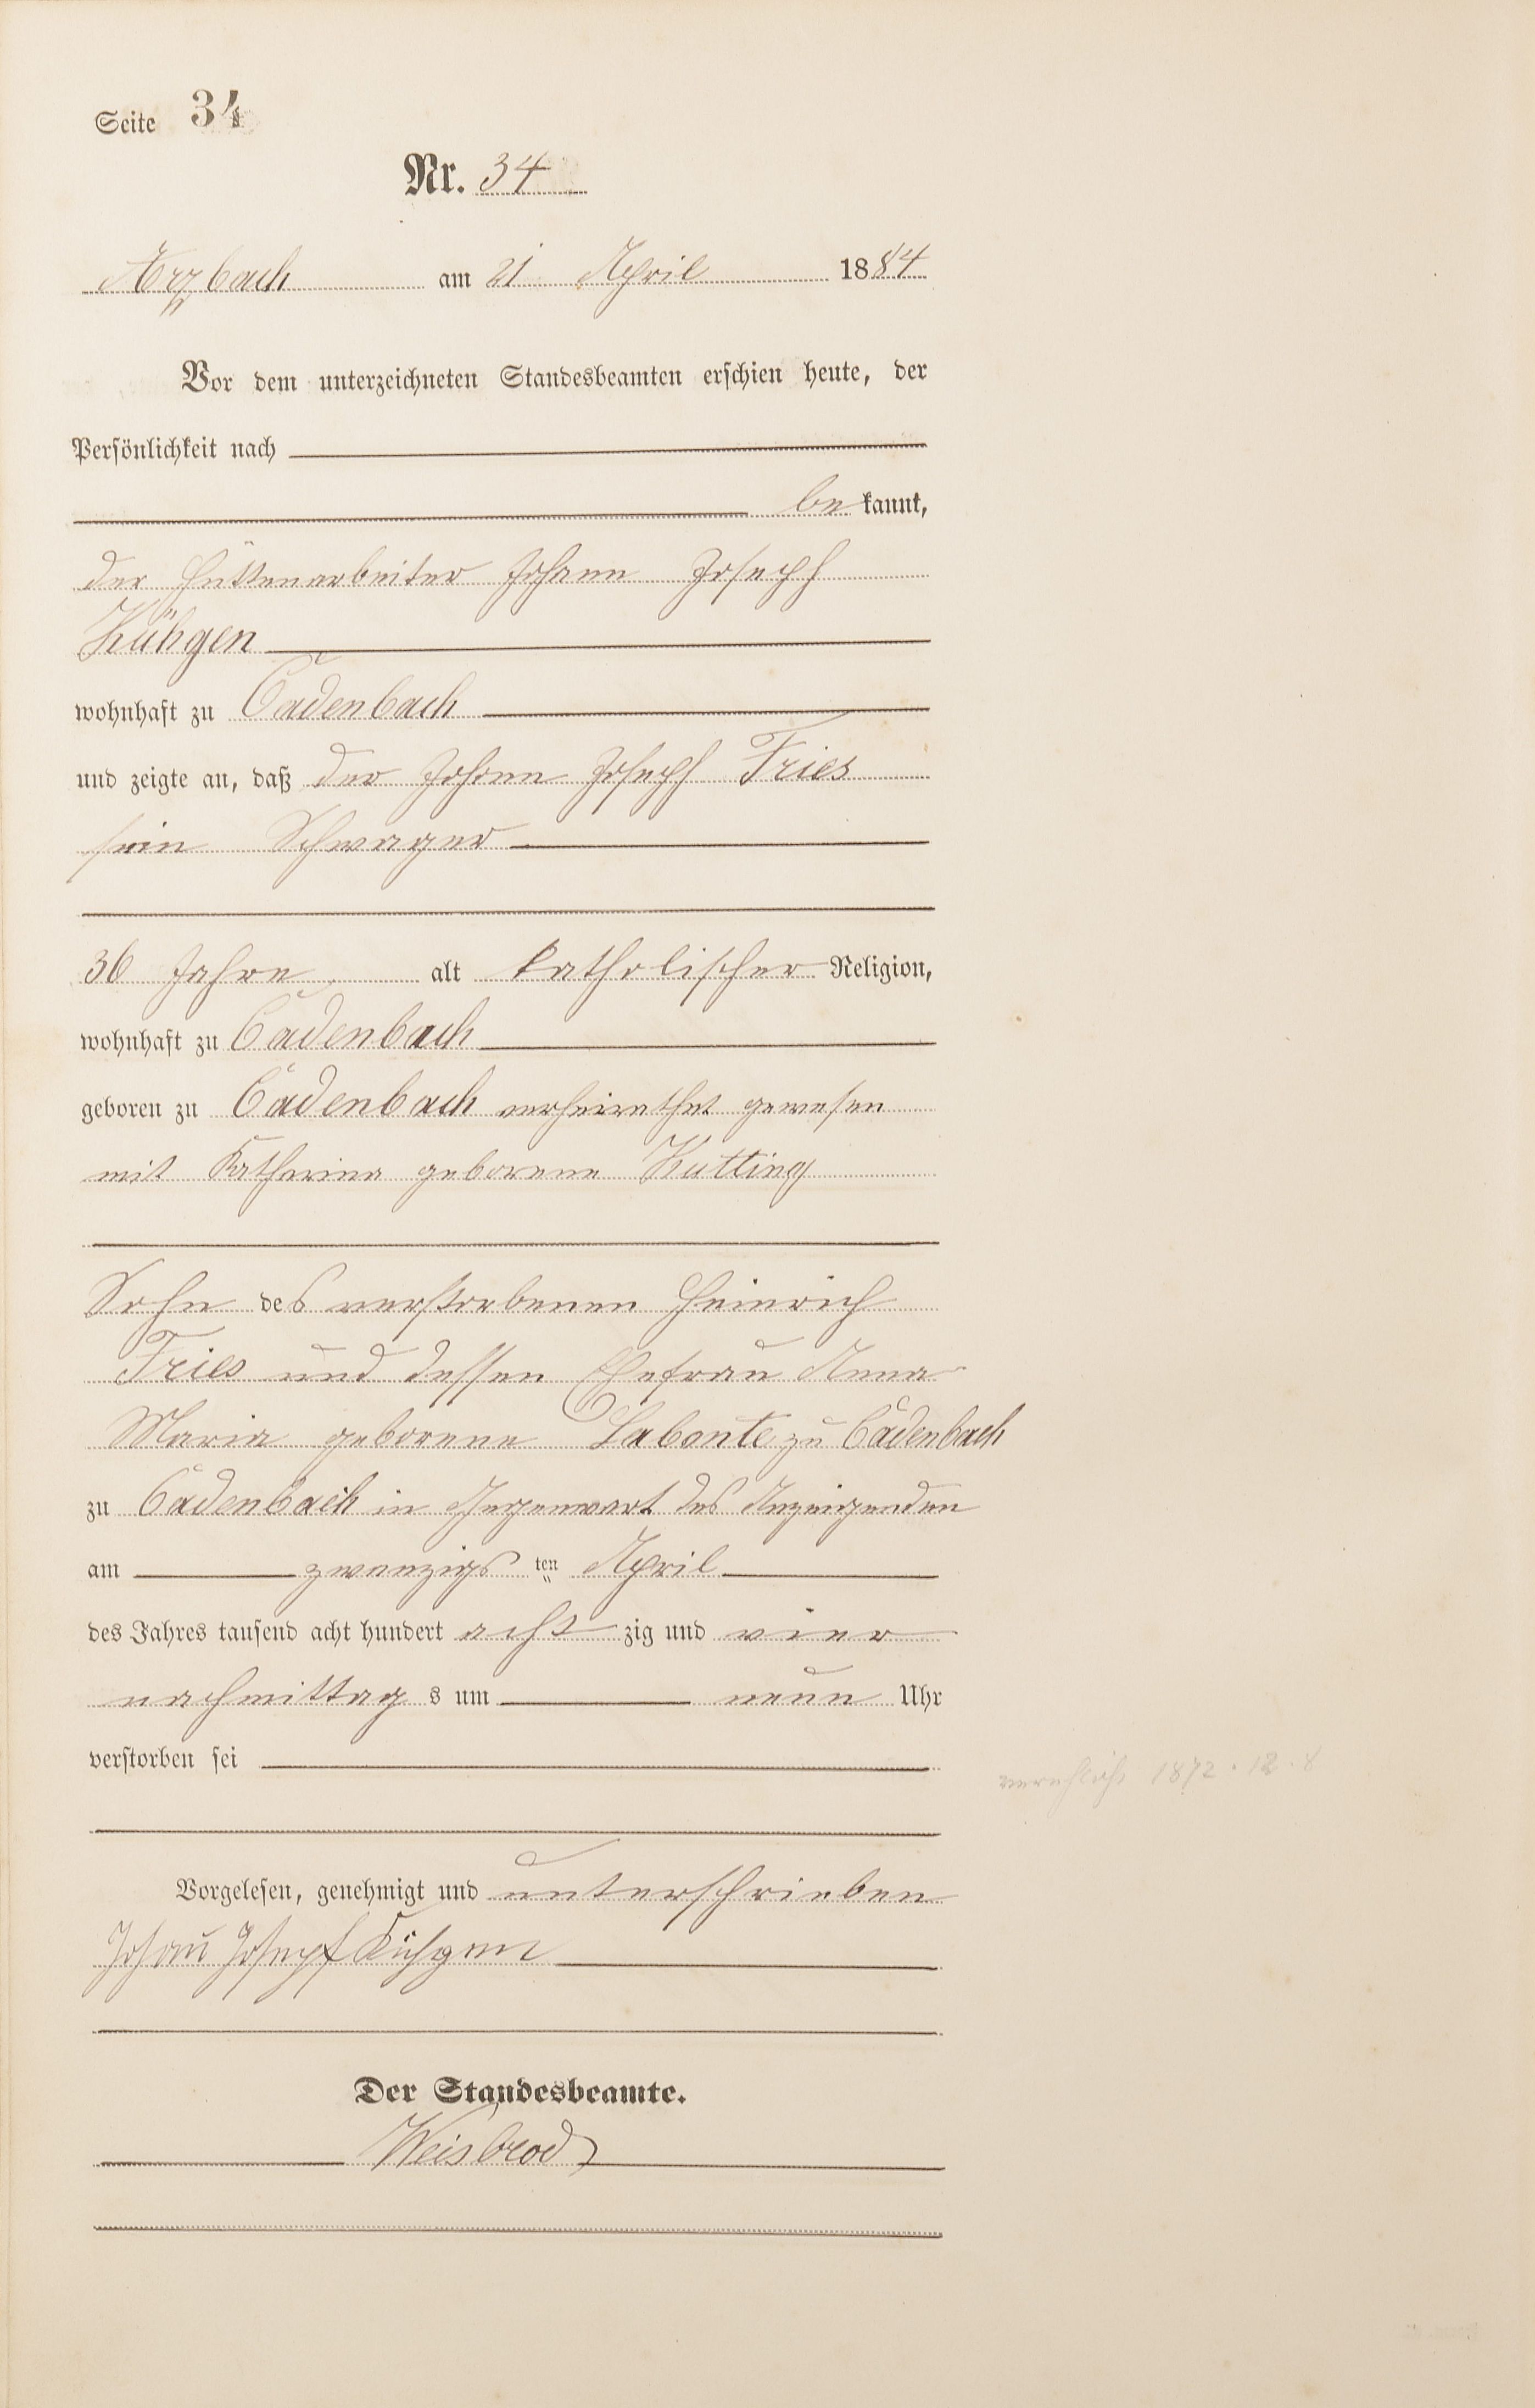 Seite 34
Nr. 34
Arzbach am 21 April 1884
Vor dem unterzeichneten Standesbeamten erschien heute, der
Persönlichkeit nach
bekannt,
der Hüttenarbeiter Johann Joseph
Kühgen
wohnhaft zu Cadenbach
und zeigte an, daß der Johann Joseph Fries
sein Schwager
36 Jahre alt katholischer Religion,
wohnhaft zu Cadenbach
geboren zu Cadenbach verheirathet gewesen
mit Katharina geborene Kutting
Sohn des verstorbenen Heinrich
Fries und dessen Ehefrau Anna
Maria geborene Labonte zu Cadenbach
zu Cadenbach in Gegenwart des Anzeigenden
am zwanzigsten April
des Jahres tausend acht hundert achtzig und vier
nachmittags um neun Uhr
verstorben sei
verehlicht 1872.12.8
Vorgelesen, genehmigt und unterschrieben
Johan Josepf Kühgen
Der Standesbeamte.
Weisbrod